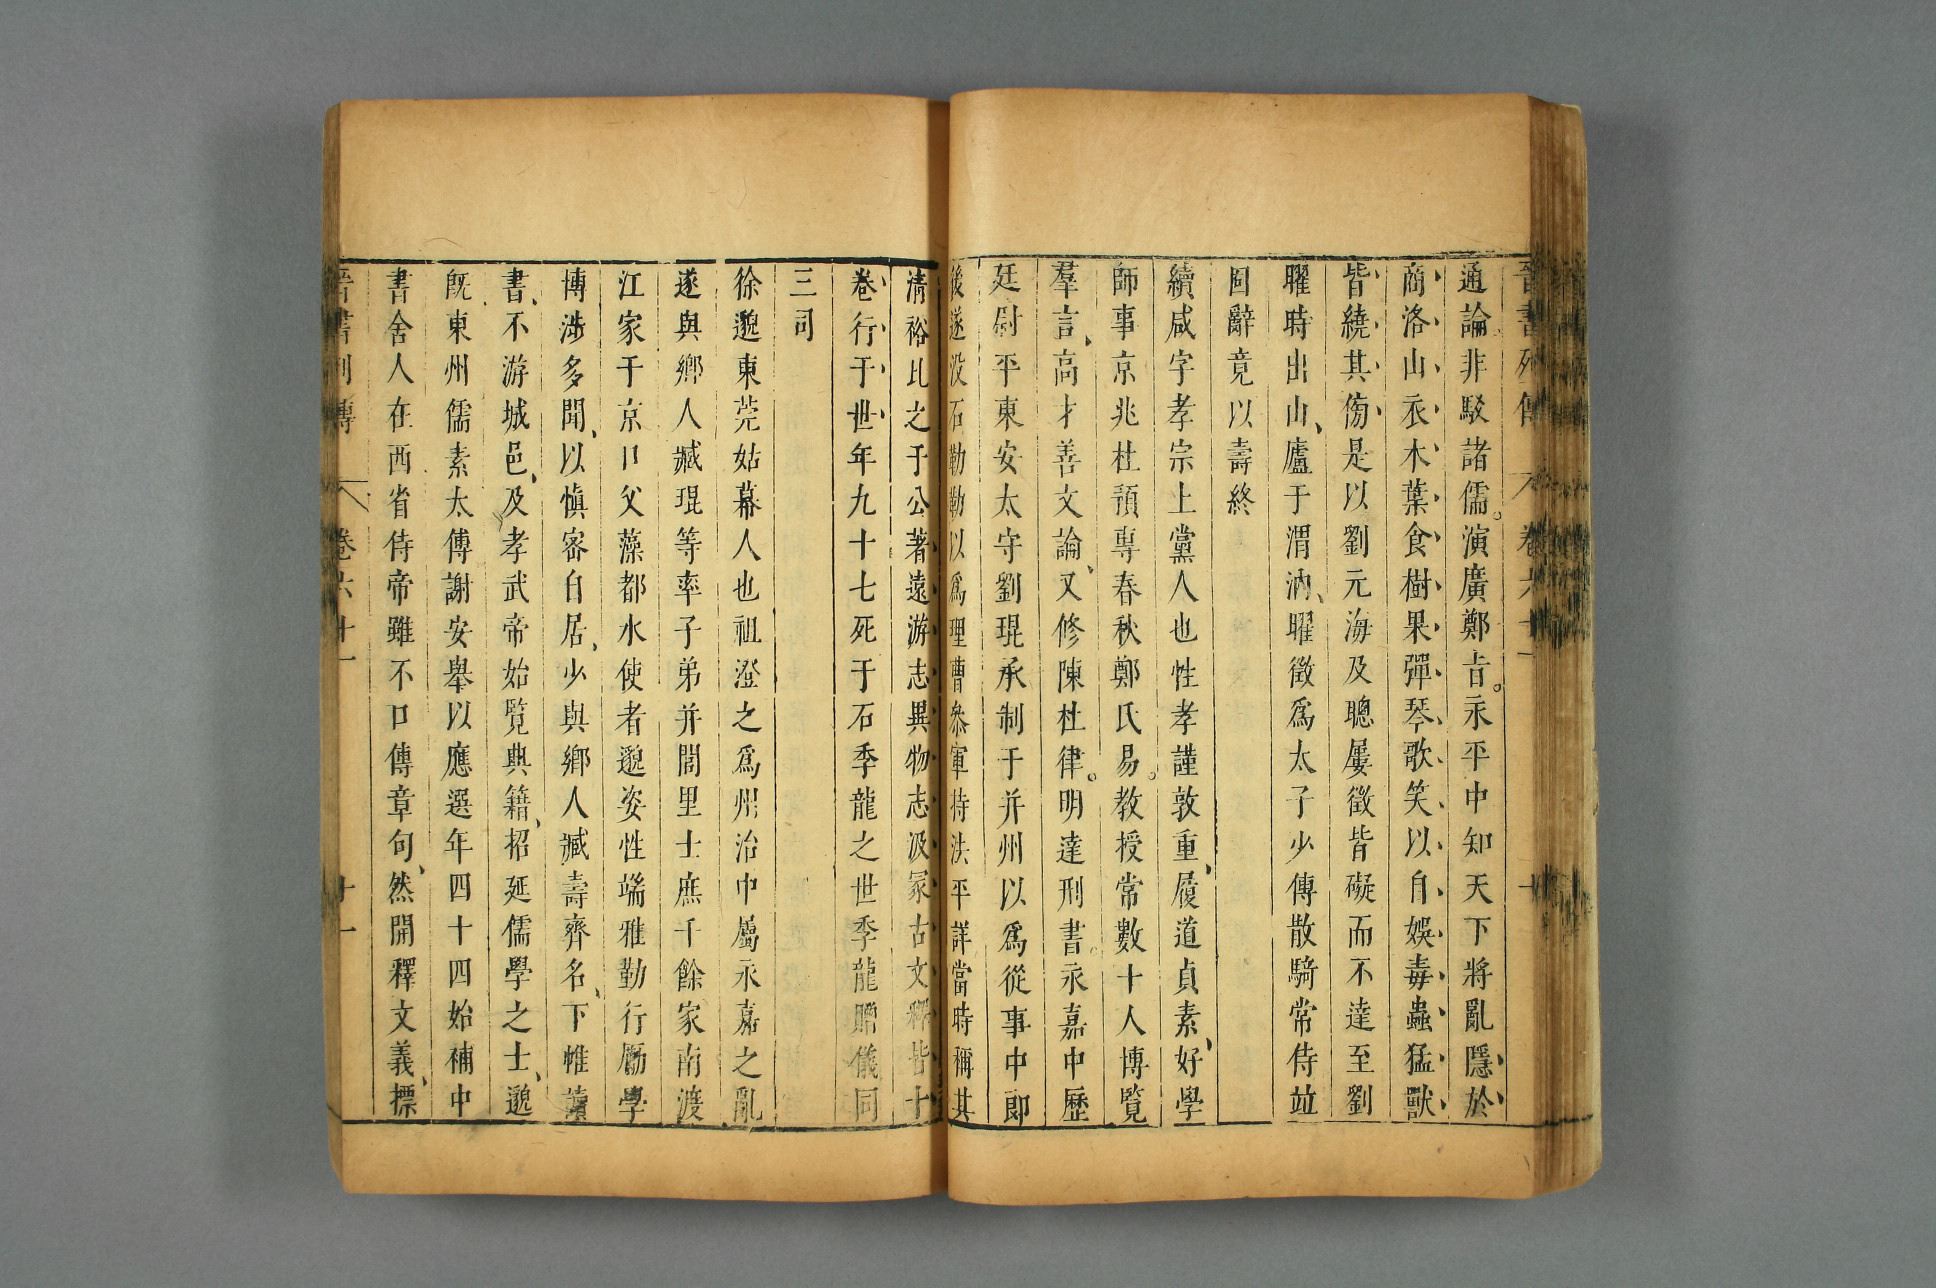 晉書列傳 卷六十一
通論非駁諸儒演廣鄭旨永平中知天下將亂隱於
商洛山衣木葉食樹果彈琴歌笑以自娛毒蟲猛獸
皆繞其傍是以劉元海及聰屢徵皆礙而不達至劉
曜時出山廬于渭汭曜徵爲太子少傅散騎常侍竝
固辭竟以壽終
續咸字孝宗上黨人也性孝謹敦重履道貞素好學
師事京兆杜預專春秋鄭氏易教授常數十人博覽
羣言高才善文論又修陳杜律明達刑書永嘉中歷
廷尉平東安太守劉琨承制于并州以爲從事中郎
後遂沒石勒勒以爲理曹參軍持法平詳當時稱其
清裕比之于公著遠游志異物志汲冢古文釋皆十
卷行于世年九十七死于石季龍之世季龍贈儀同
三司
徐邈東莞姑幕人也祖澄之爲州治中屬永嘉之亂
遂與鄉人臧琨等率子弟并閭里士庶千餘家南渡
江家于京口父藻都水使者邈姿性端雅勤行勵學
博涉多聞以愼密自居少與鄉人臧壽齊名下帷讀
書不游城邑及孝武帝始覽典籍招延儒學之士邈
既東州儒素太傅謝安舉以應選年四十四始補中
書舍人在西省侍帝雖不口傳章句然開釋文義標
晉書列傳 卷六十一 十一